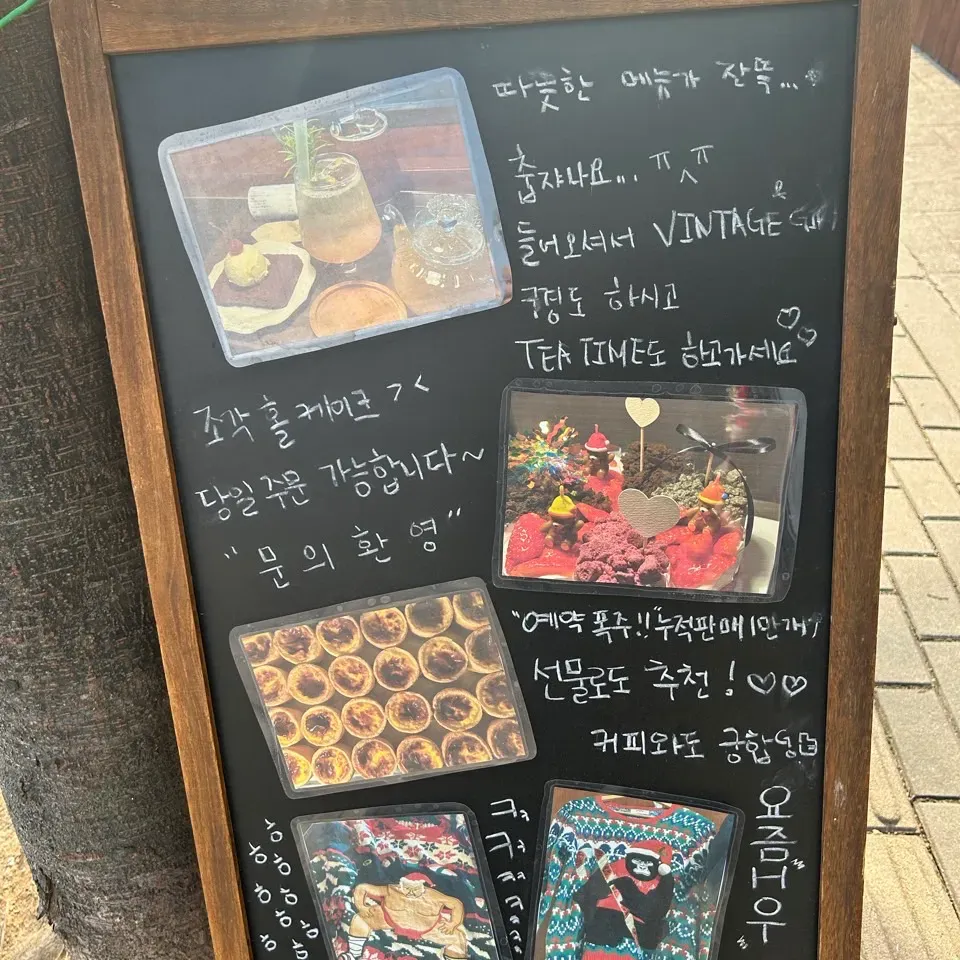 따뜻한 메뉴가 잔뜩...♡
춥쟈나요... ㅠ^ㅠ
들어오셔서 VINTAGE
구경도 하시고
TEA TIME도 하고가세요 ♡♡
조각 홀 케이크 > <
당일 주문 가능합니다~
"문의 환영"
"예약 폭주!!" 누적판매 1만개↑
선물로도 추천! ♡♡
커피와도 궁합
요즘